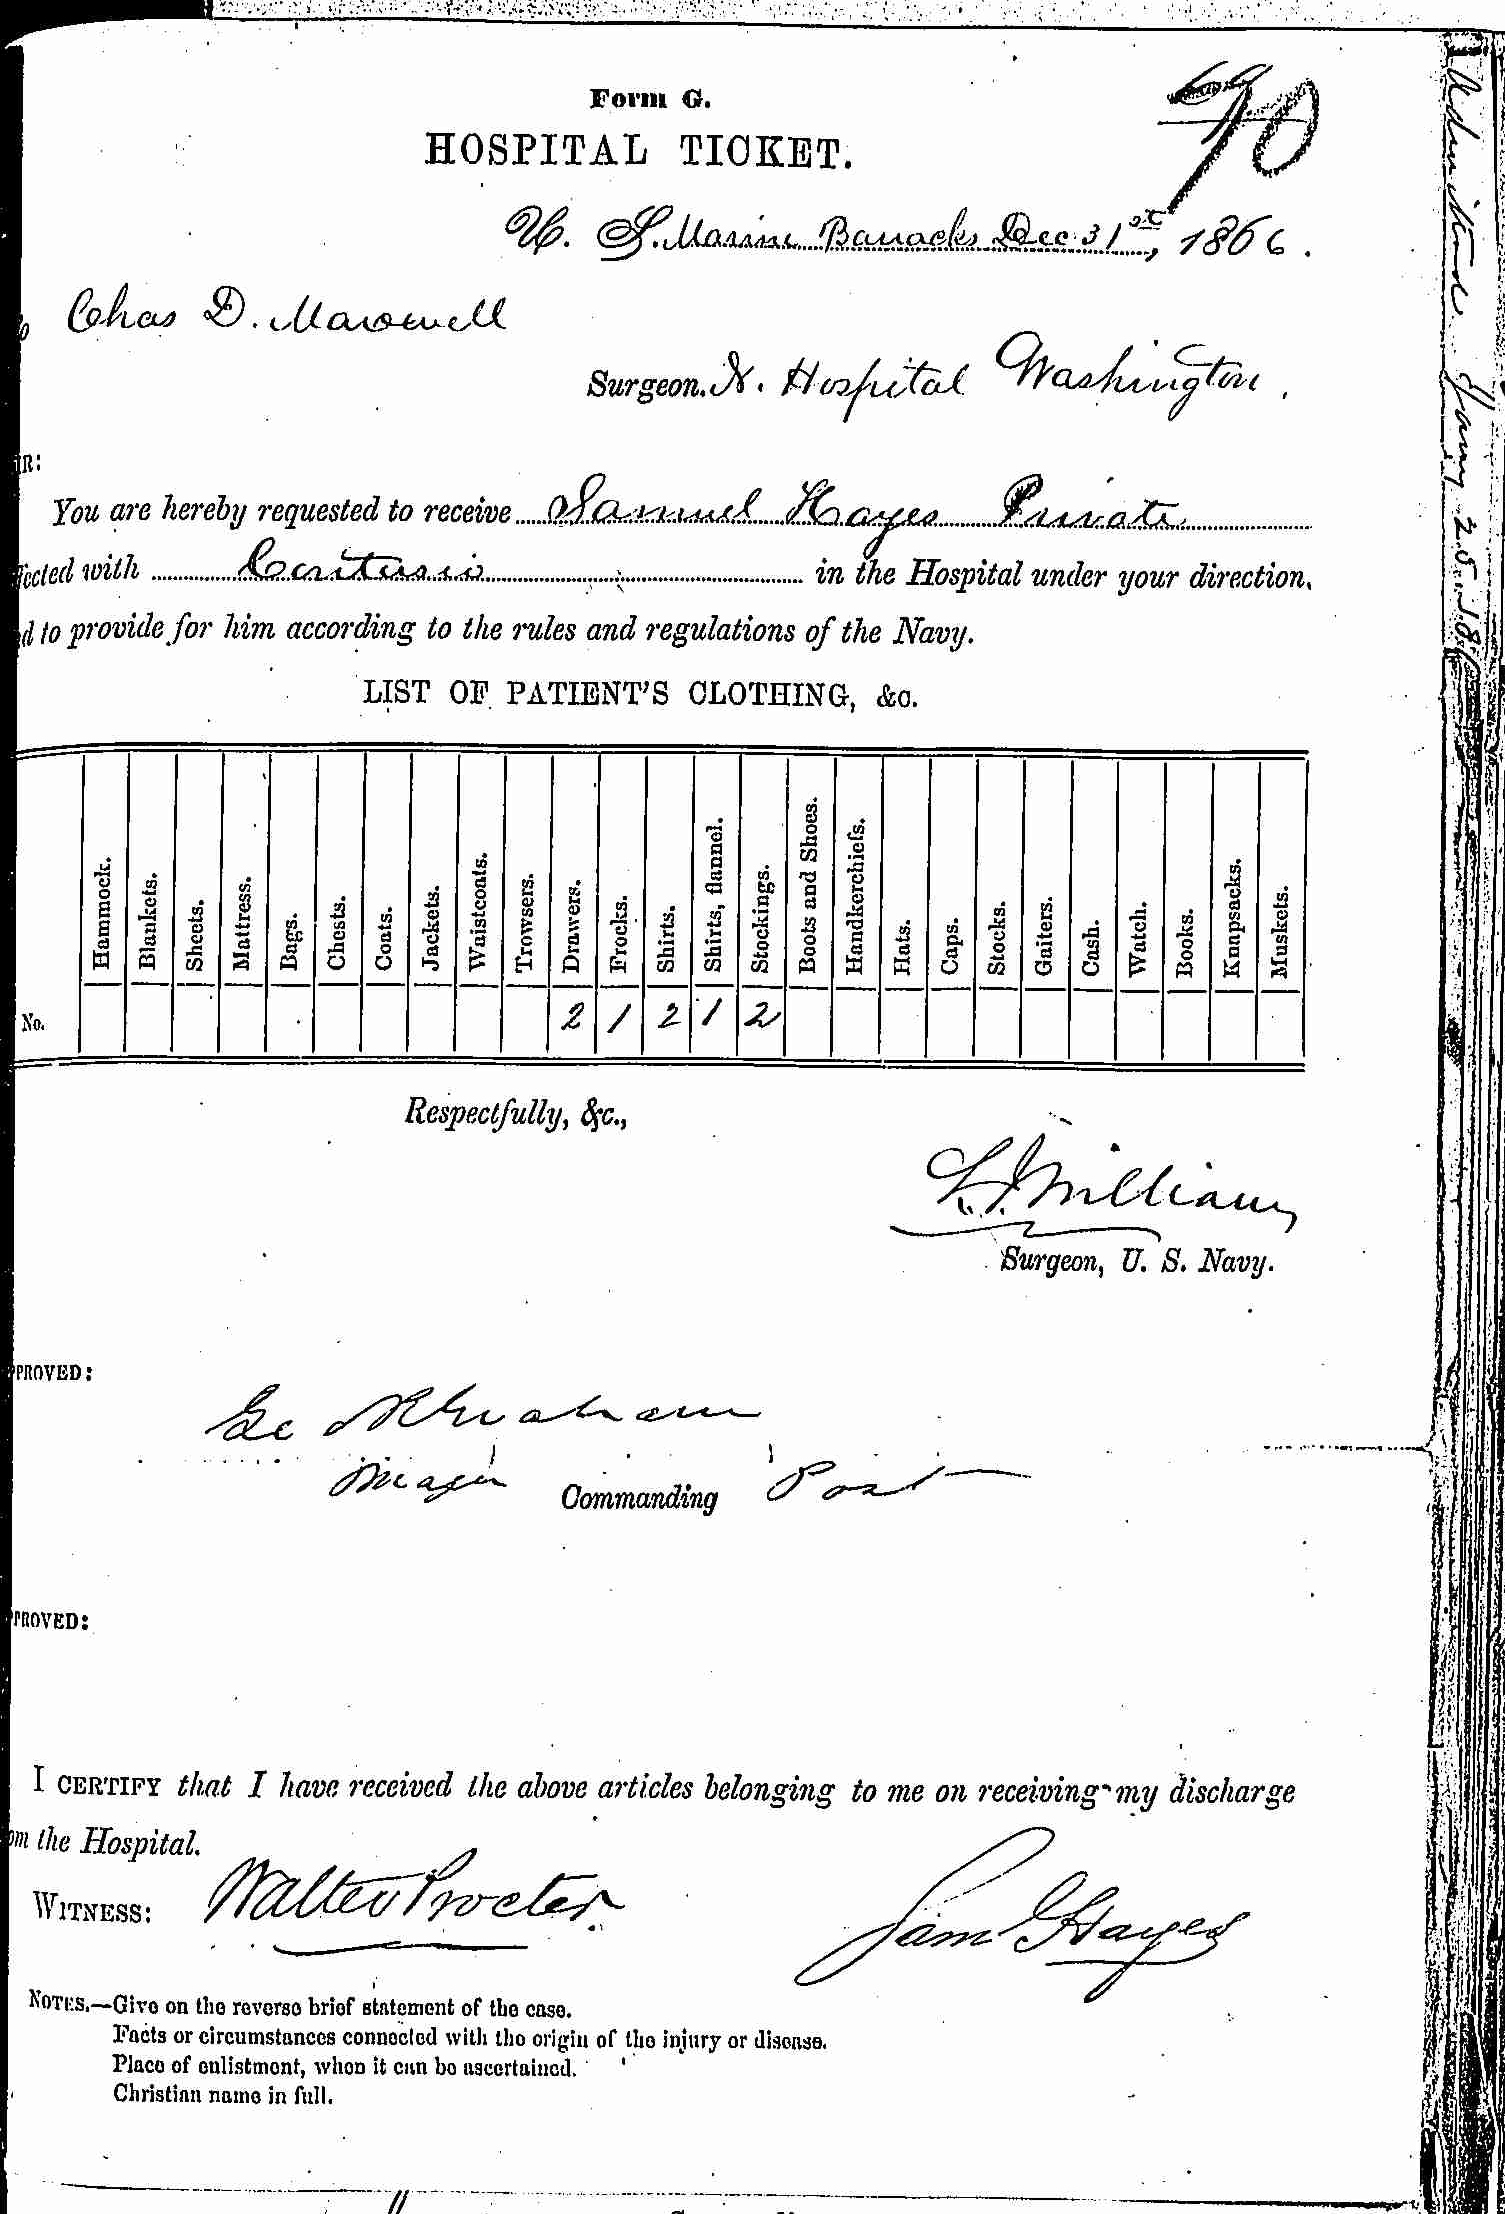 Form G.
HOSPITAL TICKET.
70
U. S. Marine Barracks Dec 31st, 1866.
Chas D. Maxwell
Surgeon. N. Hospital Washington.
R:
You are hereby requested to receive Samuel Hayes Private
ected with Contusio in the Hospital under your direction,
d to provide for him according to the rules and regulations of the Navy.
LIST OF PATIENT'S CLOTHING, &c.
Hammock. Blankets. Sheets. Mattress. Bags. Chests. Coats. Jackets. Waistcoats. Trowsers. Drawers. Frocks. Shirts. Shirts, flannel. Stockings. Boots and Shoes. Handkerchiefs. Hats. Caps. Stocks. Gaiters. Cash. Watch. Books. Knapsacks. Muskets.
No. 2 1 2 1 2
Respectfully, &c.,
Williams
Surgeon, U. S. Navy.
PPROVED:
Graham
Major Commanding Post
PROVED:
I CERTIFY that I have received the above articles belonging to me on receiving my discharge
om the Hospital.
WITNESS: Walter Procter
Sam Hayes
NOTES.—Give on the reverse brief statement of the case.
Facts or circumstances connected with the origin of the injury or disease.
Place of enlistment, when it can be ascertained.
Christian name in full.
Admitted Jany 25 186